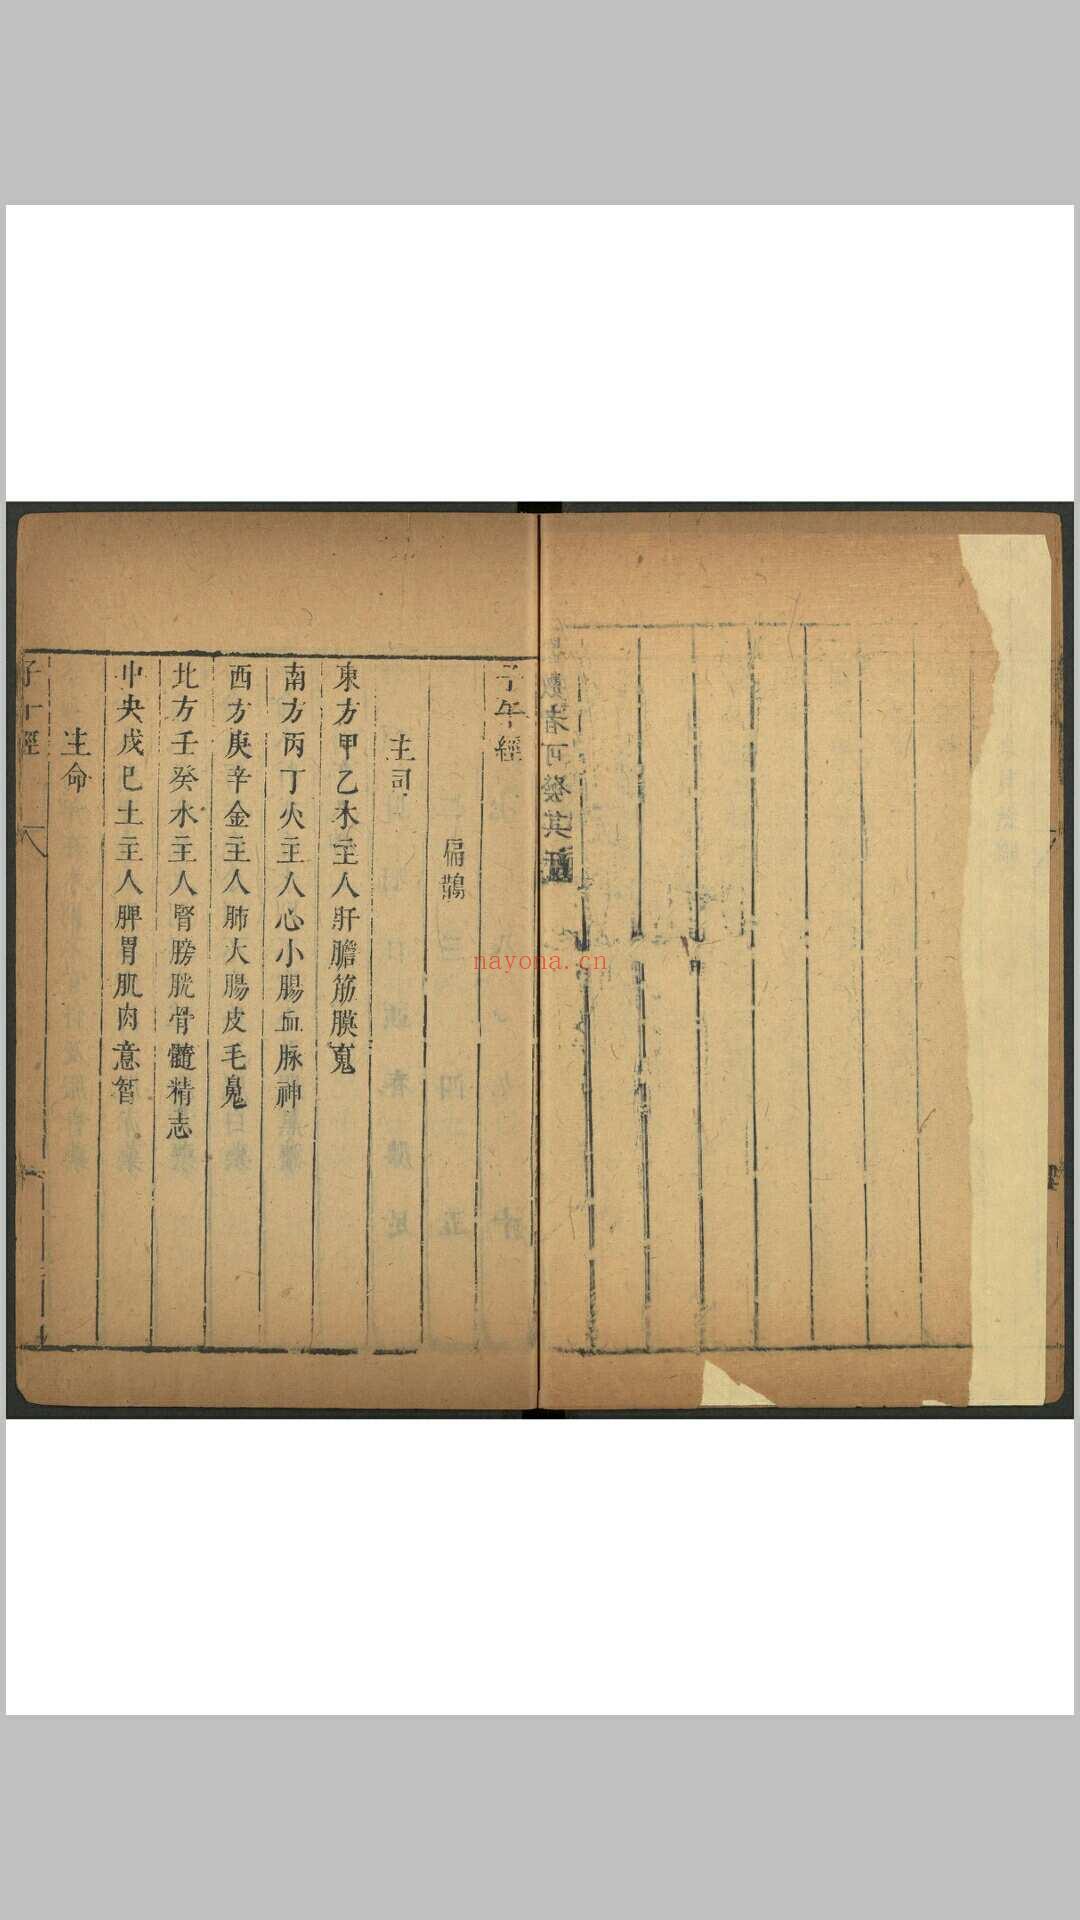 數者可發其
子午經
扁鵲
主司
東方甲乙木主人肝膽筋膜䰟
南方丙丁火主人心小腸血脉神
西方庚辛金主人肺大腸皮毛䰟
北方壬癸水主人腎膀胱骨髓精志
中央戊巳土主人脾胃肌肉意智
主命
nayona.cn